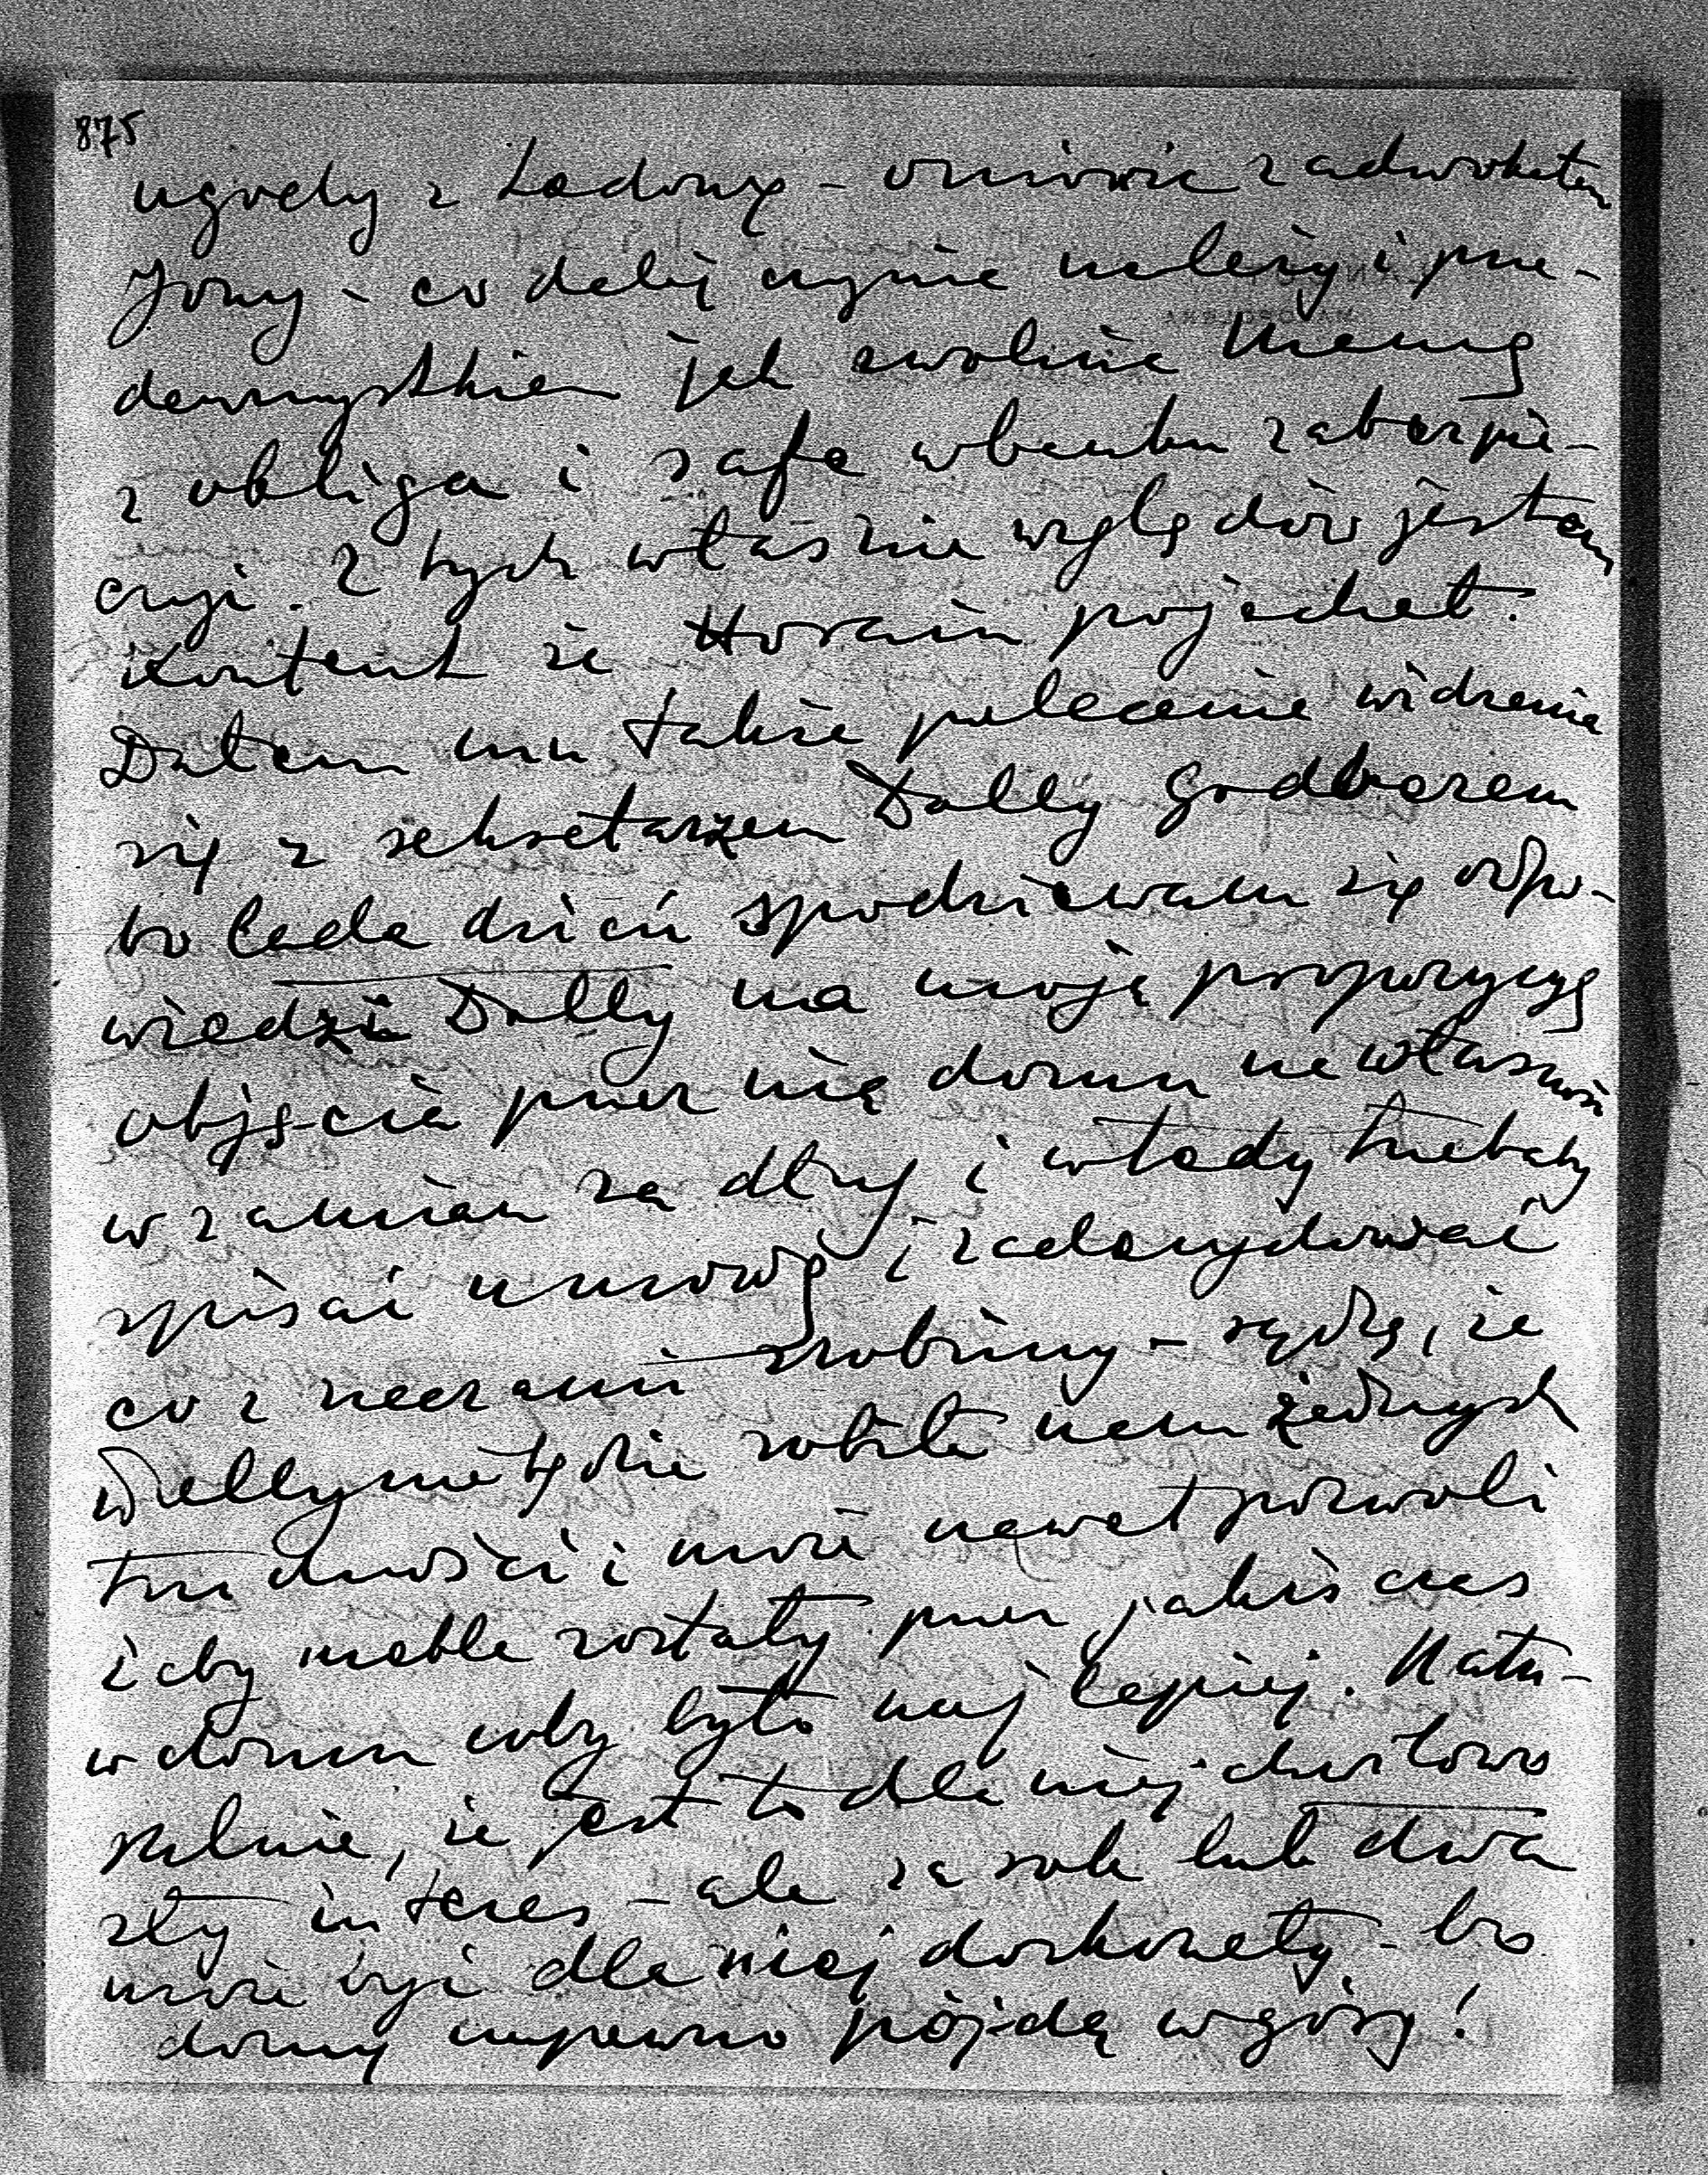 875
ugody z Ładoną - omówić z adwokatem
Jony - co dalej czynić należy i prze-
dewszystkiem jak zwolnić Mamę
z obliga i safe w banku zabezpie-
czyć. Z tych właśnie względów jestem
kontent że Horain pojechał.
Dałem mu także polecenie widzenia
się z sekretarzem Dolly Godborem
bo lada dzień spodziewam się odpo-
wiedzi Dolly na moją propozycyę
objęcia przez nią domu na własność
w zamian za dług i wtedy trzebaby
spisać umowę i zadecydować
co z rzeczami zrobimy - sądzę, że
Dolly nie będzie robiła nam żadnych
trudności i może nawet pozwoli
iżby meble zostały przez jakiś czas
w domu coby było najlepiej. Natu-
ralnie, że jest to dla niej chwilowo
zły interes - ale za rok lub dwa
może być dla niej doskonały - bo
domy napewno pójdą w górę!